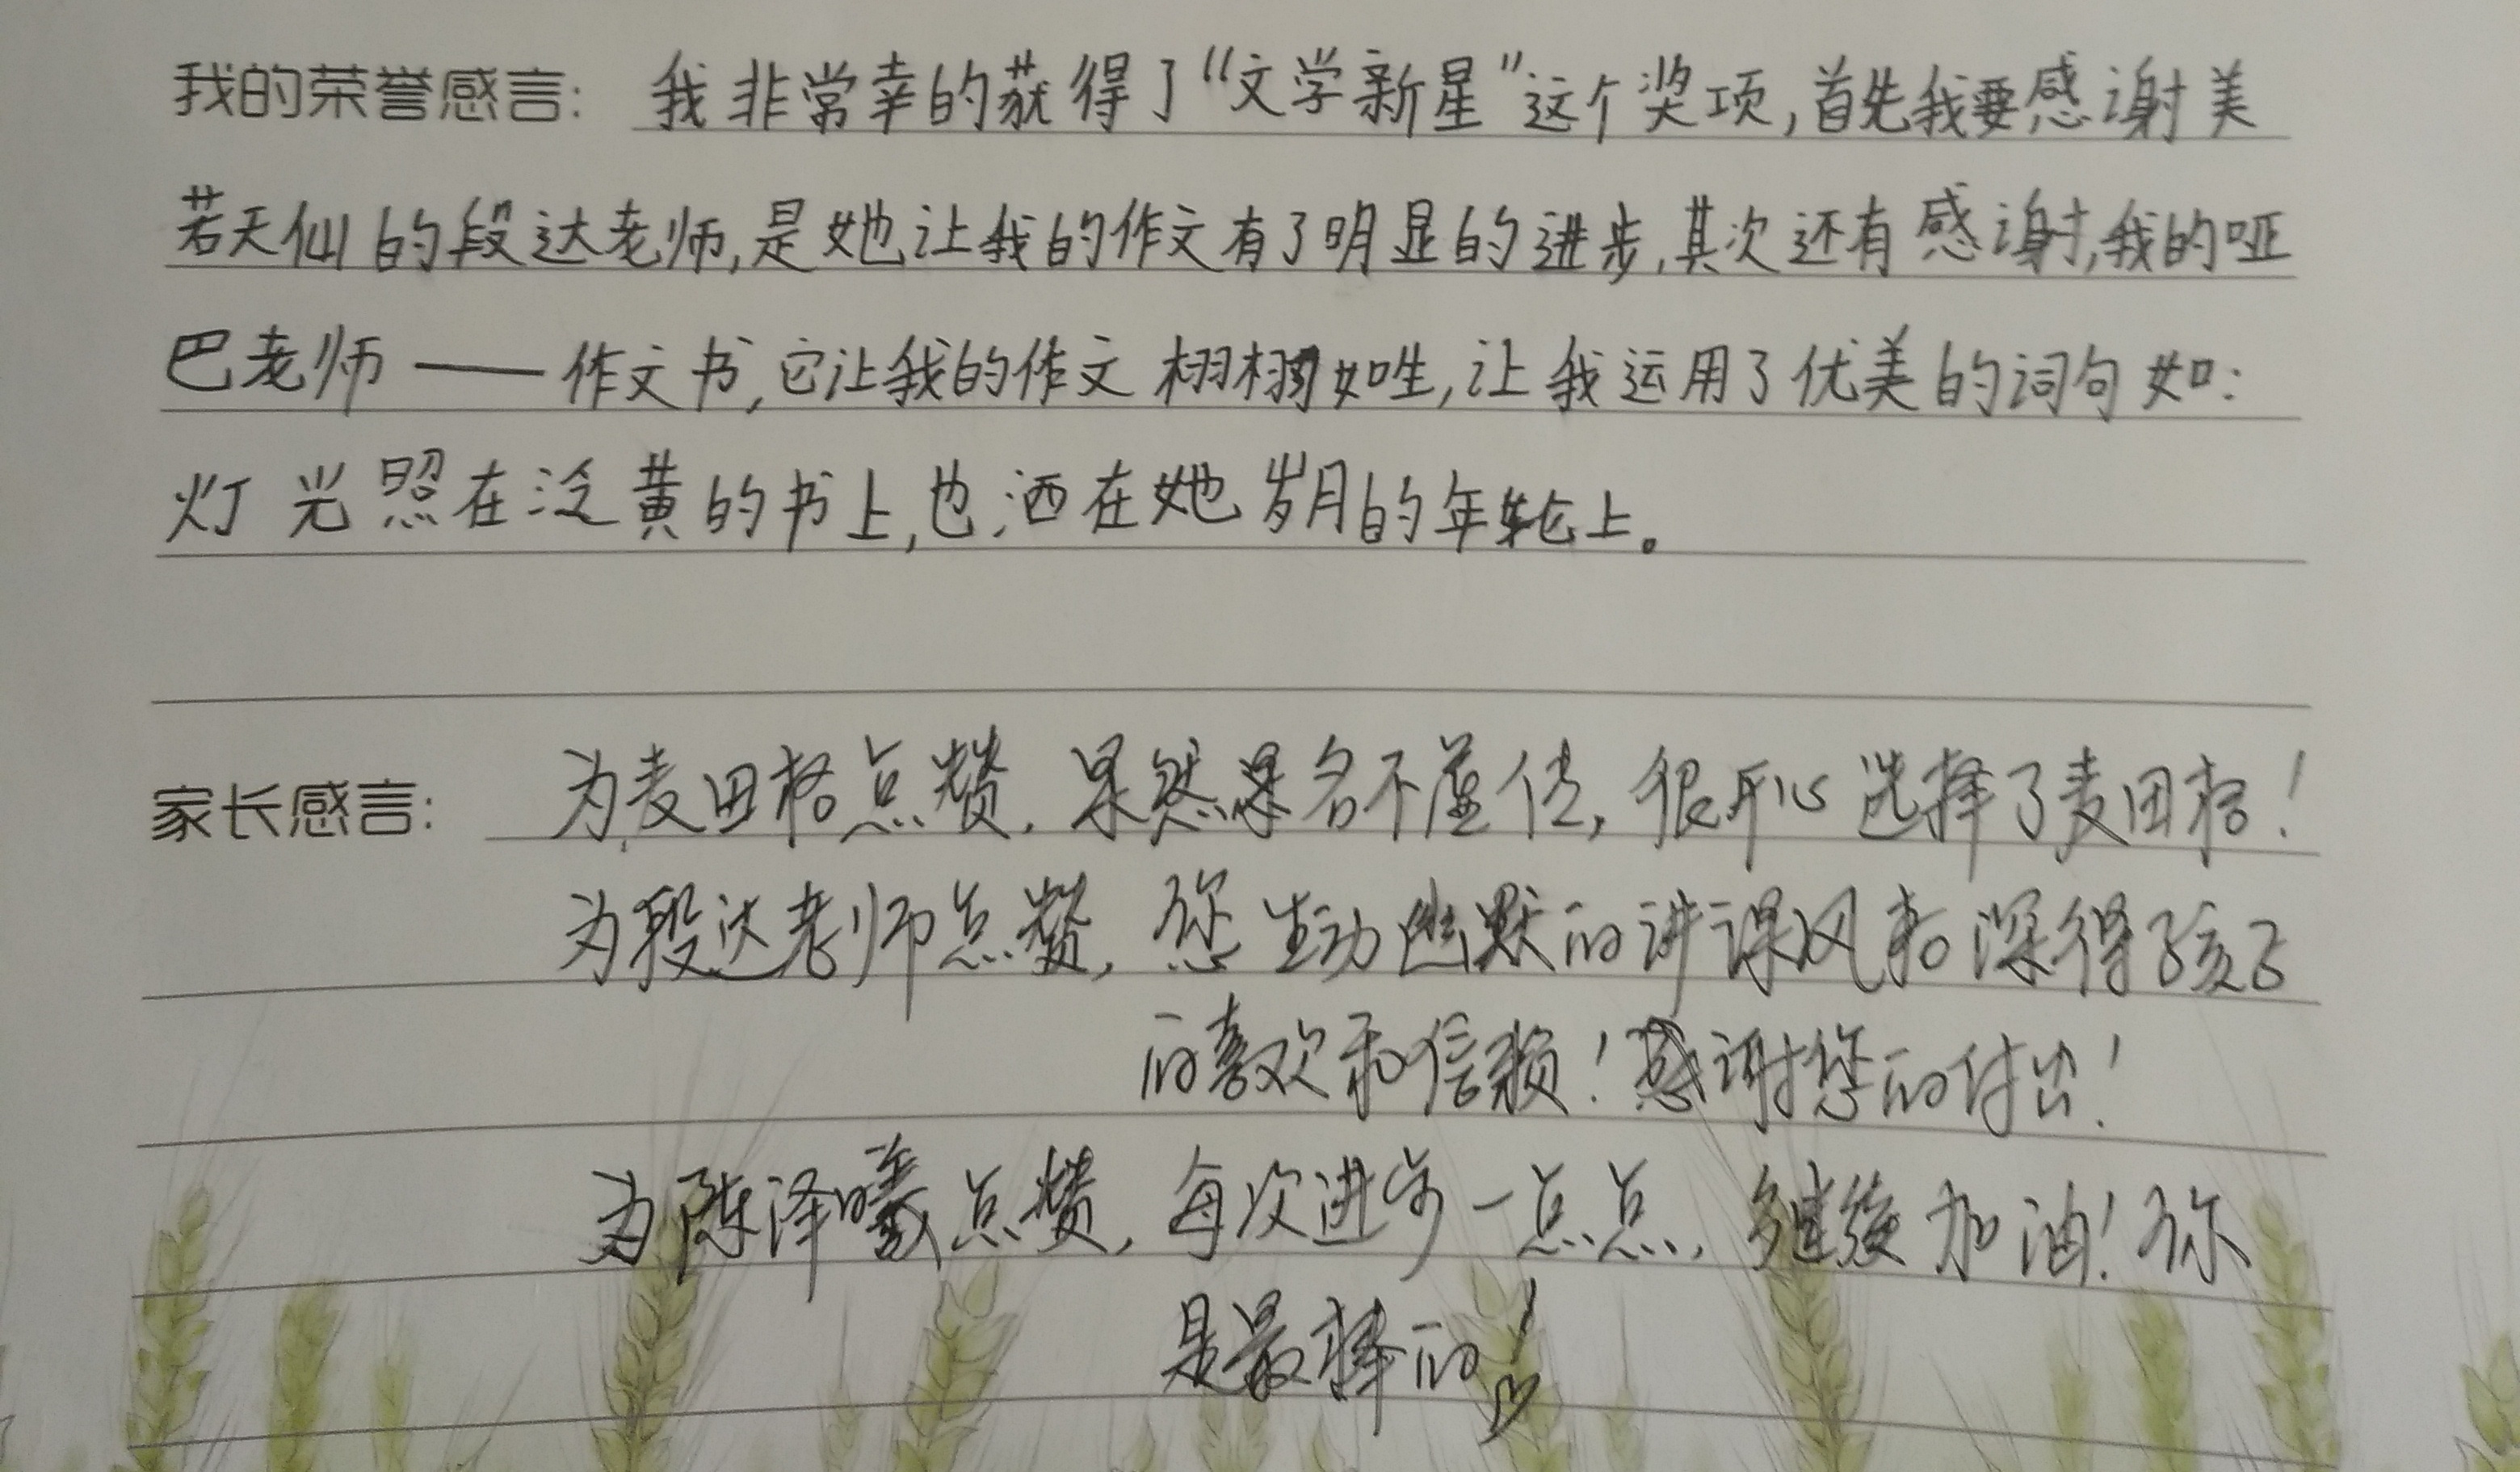 我的荣誉感言：我非常幸的获得了“文学新星”这个奖项,首先我要感谢美
若天仙的段达老师,是她让我的作文有了明显的进步,其次还有感谢,我的哑
巴老师——作文书,它让我的作文栩栩如生,让我运用了优美的词句如:
灯光照在泛黄的书上,也洒在她岁月的年轮上。
家长感言：为麦田格点赞，果然是名不虚传，很开心选择了麦田格！
为段达老师点赞，您生动幽默的讲课风格深得了孩子
的喜欢和信赖！感谢您的付出！
为陈泽曦点赞，每次进步一点点，继续加油！你
是最棒的！